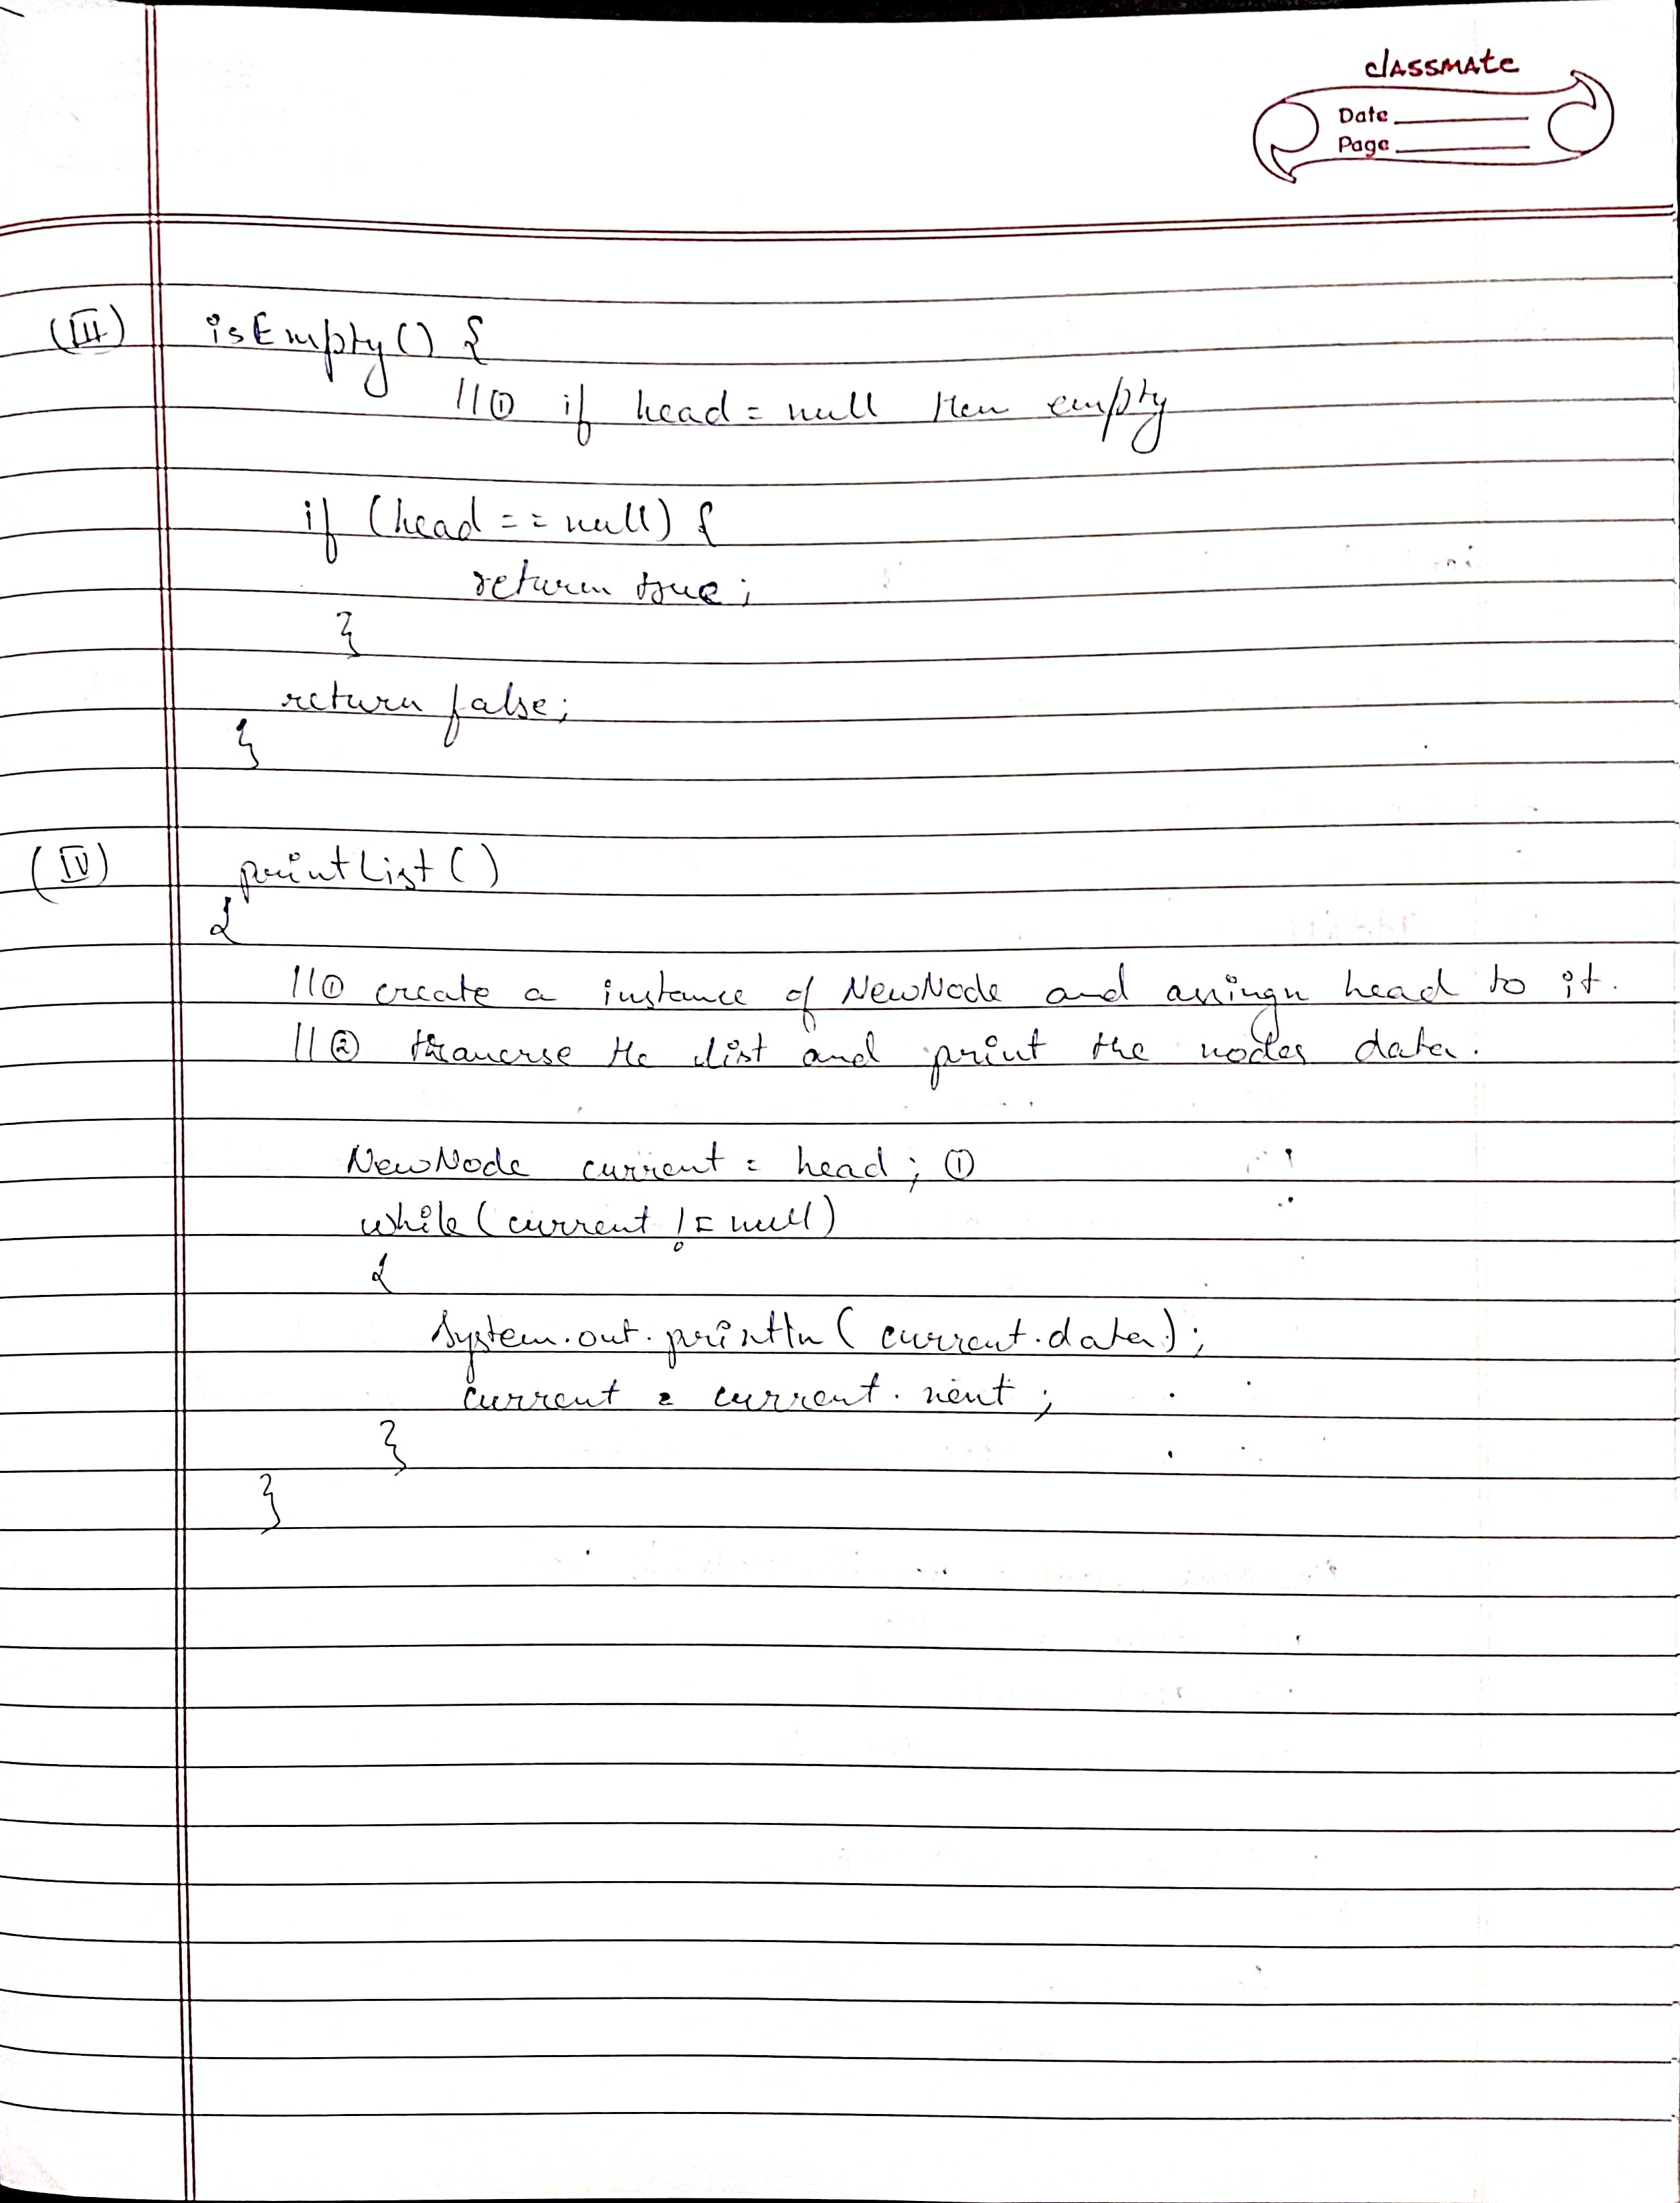 classmate
Date
Page
(III) isEmpty() {
//① if head = null then empty
if (head == null) {
return true;
}
return false;
}
(IV) printList()
{
//① create a instance of NewNode and assingn head to it.
//② traverse the list and print the nodes data.
NewNode current = head; ①
while (current != null)
{
System.out.println( current.data);
current = current.next;
}
}